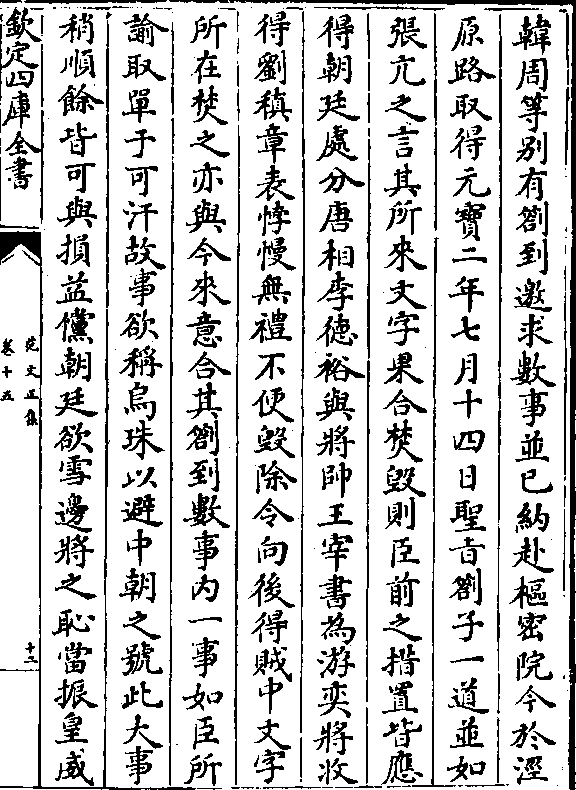 韓周等别有劄到邀求數事並已納赴樞密院今於涇
原路取得元寶二年七月十四日聖㫖劄子一道並如
張亢之言其所來文字果合焚毁則臣前之措置皆應
得朝廷處分唐相李徳裕與將帥王宰書為游奕將收
得劉稹章表悖慢無禮不便毁除今向後得賊中文字
所在焚之亦與今來意合其劄到數事内一事如臣所
諭取單于可汗故事欲稱烏珠以避中朝之號此大事
稍順餘皆可與損益儻朝廷欲雪邊將之恥當振皇威
欽定四庫全書
范文正集
卷十五
十二